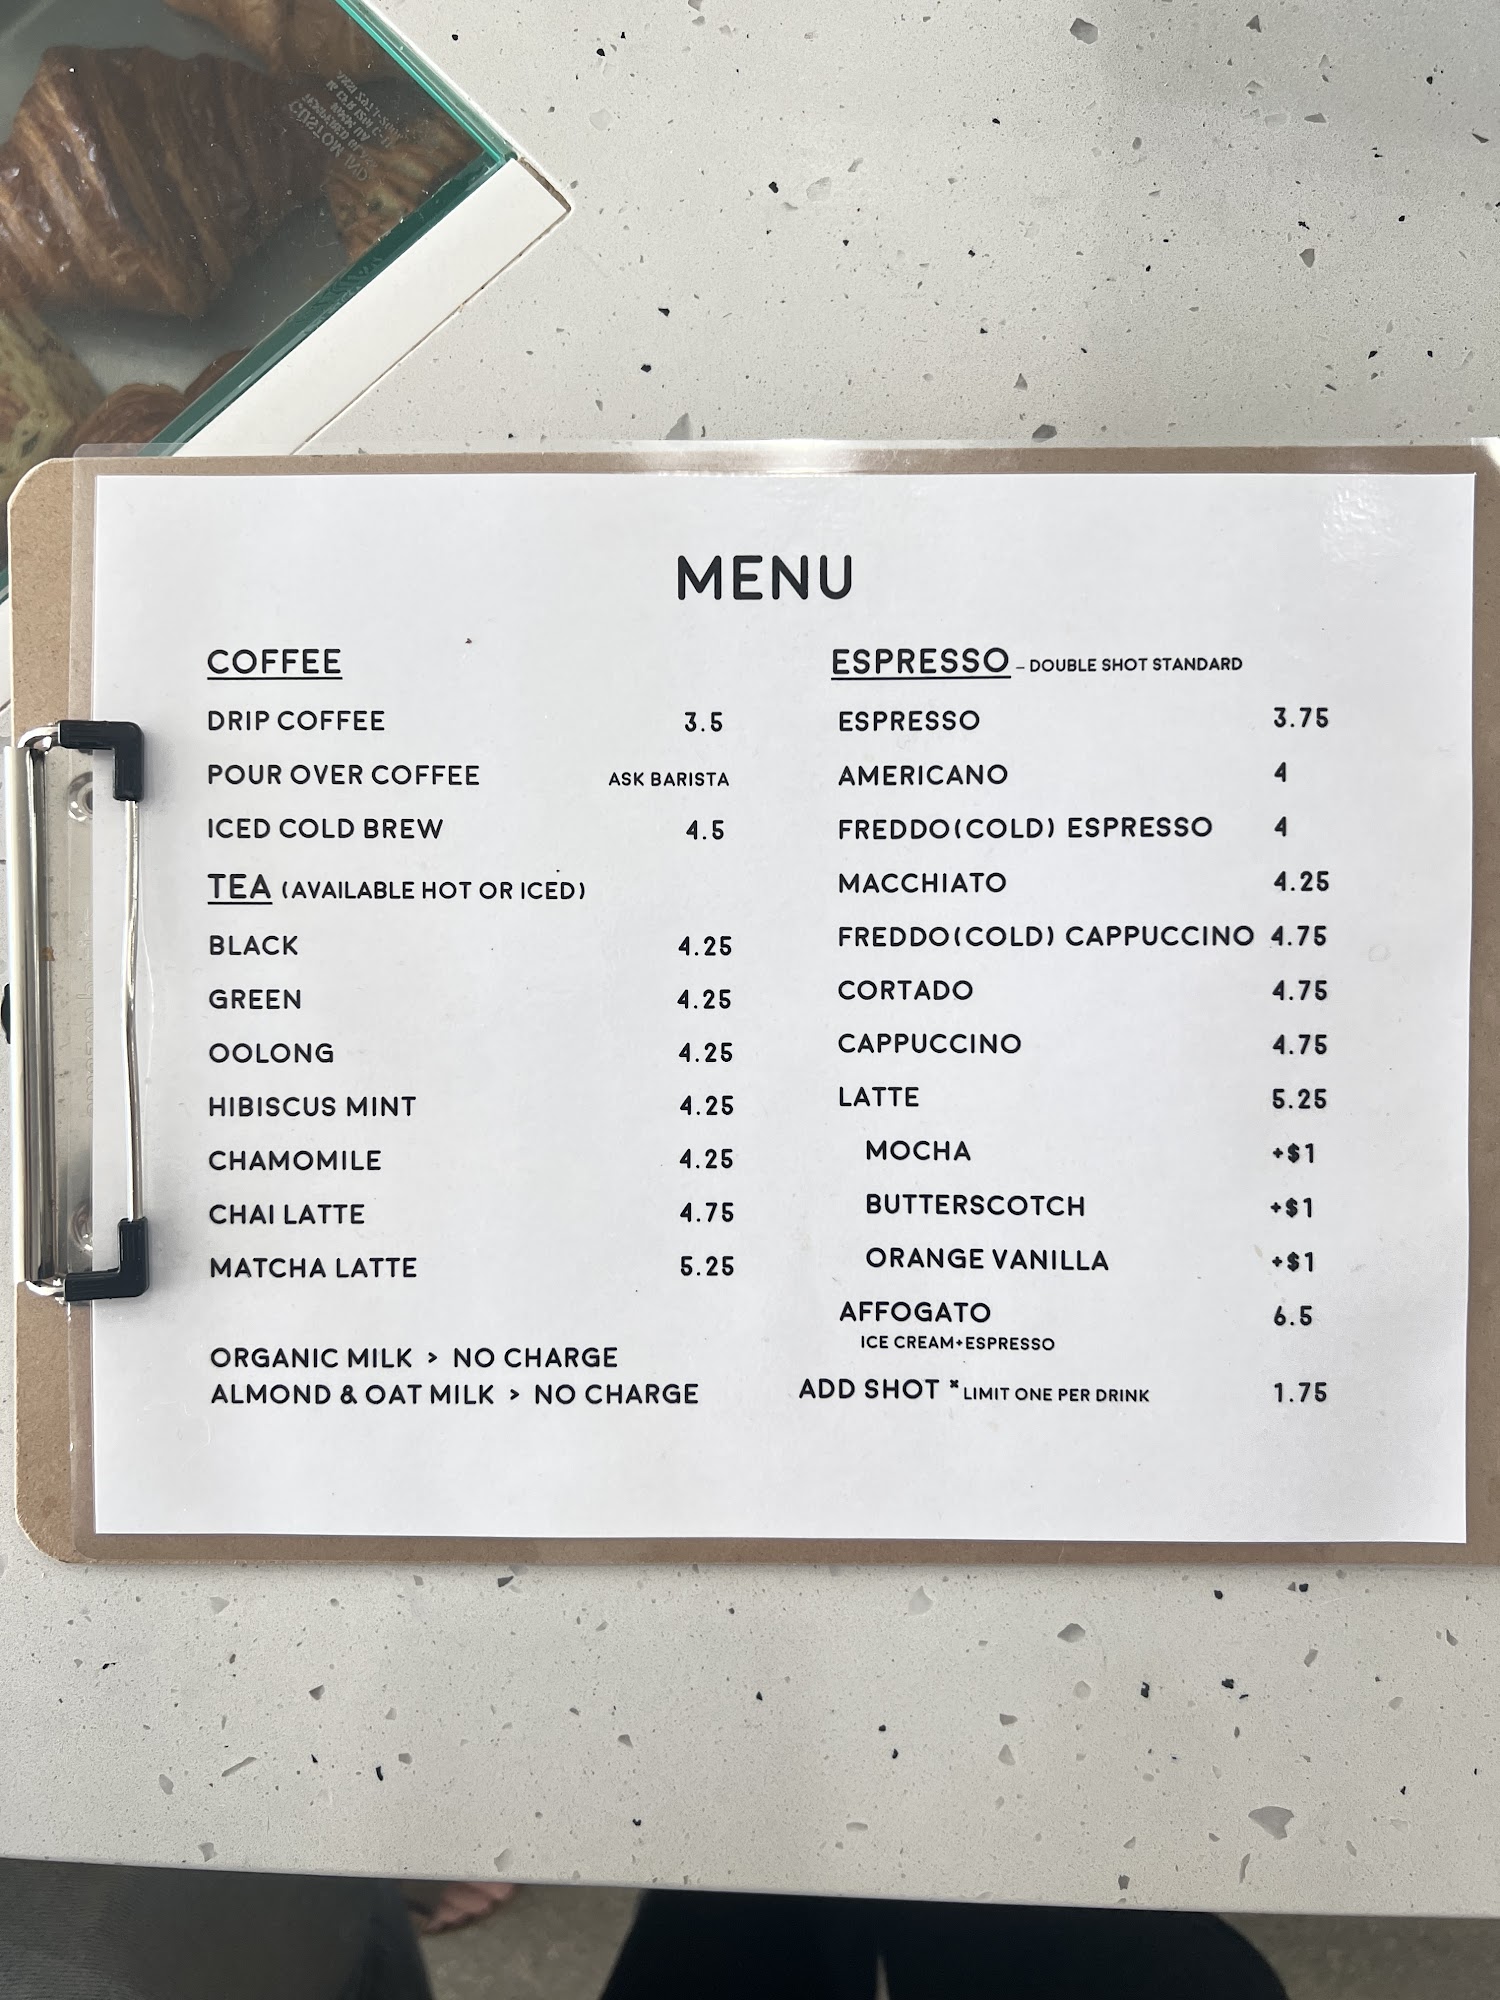 MENU
COFFEE
DRIP COFFEE 3.5
POUR OVER COFFEE ASK BARISTA
ICED COLD BREW 4.5
TEA (AVAILABLE HOT OR ICED)
BLACK 4.25
GREEN 4.25
OOLONG 4.25
HIBISCUS MINT 4.25
CHAMOMILE 4.25
CHAI LATTE 4.75
MATCHA LATTE 5.25
ORGANIC MILK > NO CHARGE
ALMOND & OAT MILK > NO CHARGE
ESPRESSO – DOUBLE SHOT STANDARD
ESPRESSO 3.75
AMERICANO 4
FREDDO(COLD) ESPRESSO 4
MACCHIATO 4.25
FREDDO(COLD) CAPPUCCINO 4.75
CORTADO 4.75
CAPPUCCINO 4.75
LATTE 5.25
MOCHA +$1
BUTTERSCOTCH +$1
ORANGE VANILLA +$1
AFFOGATO 6.5
ICE CREAM+ESPRESSO
ADD SHOT *LIMIT ONE PER DRINK 1.75